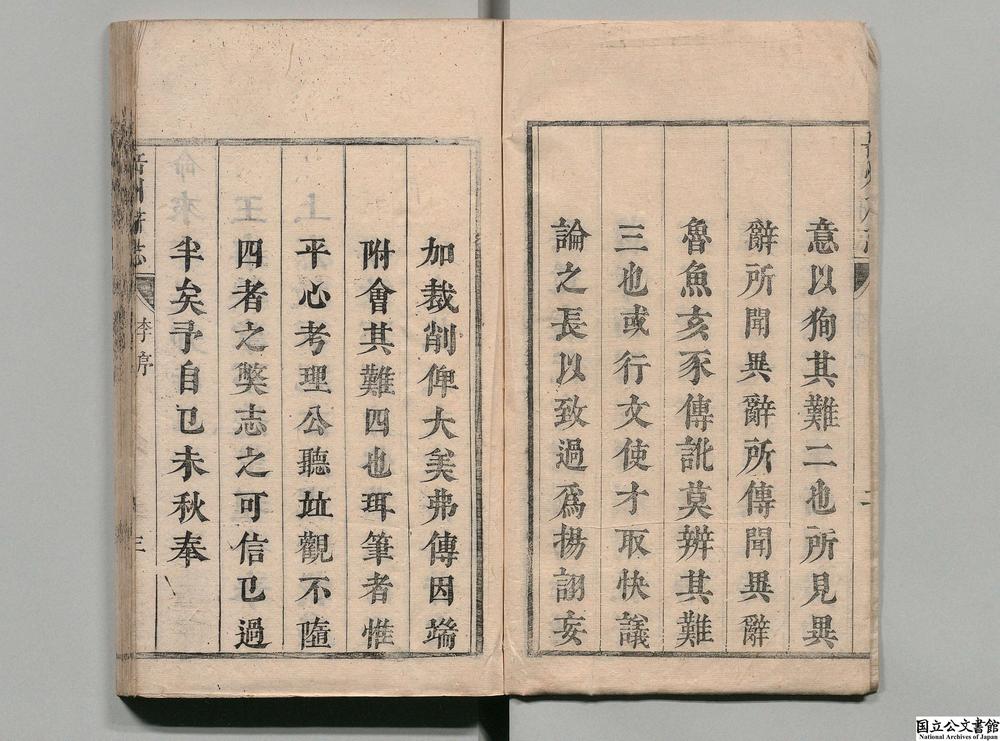 意以狥其難二也所見異
辭所聞異辭所傳聞異辭
魯魚亥豕傳訛莫辨其難
三也或行文使才取快議
論之長以致過爲揚詡妄
加裁削俾大美弗傳因端
附會其難四也珥筆者惟
平心考理公聽並觀不墮
四者之獘志之可信已過
半矣予自已未秋奉
李序
三
国立公文書館
National Archives of Japan